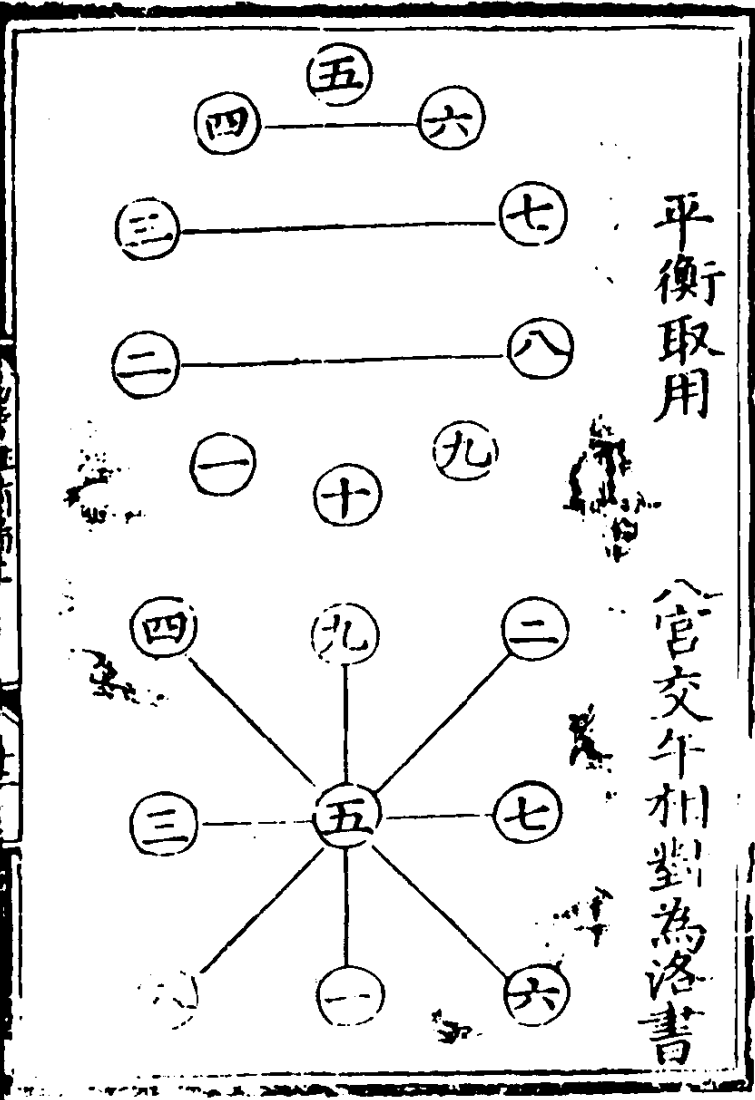 平衡取用
五
四 六
三 七
二 八
一 九
十
八官交午相對為洛書
四 九 二
三 五 七
八 一 六